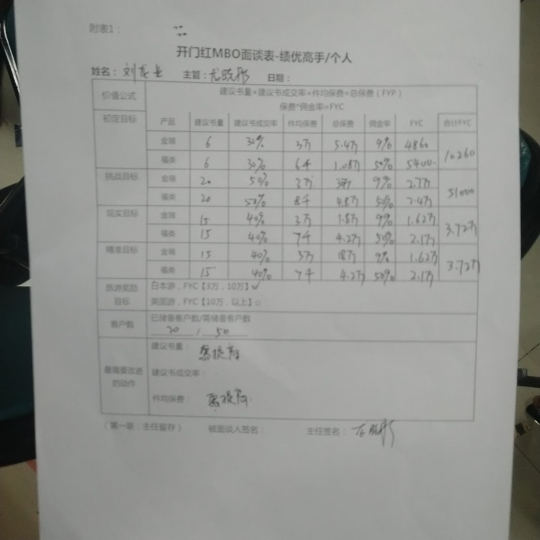 附表1：
开门红MBO面谈表-绩优高手/个人
姓名： 主管： 日期：
价值公式 建议书量*建议书成交率*件均保费=总保费（FYP）
保费*佣金率=FYC
初定目标 产品 建议书量 建议书成交率 件均保费 总保费 佣金率 FYC 合计FYC
金瑞 6 30% 3万 5.4万 9% 4860
福类 6 30% 6千 1.08万 50% 5400 10260
挑战目标 金瑞 20 50% 3万 9% 2.7万
福类 20 50% 8千 4.8万 50% 2.4万 51000
现实目标 金瑞 15 40% 3万 1.8万 9% 1.62万
福类 15 40% 7千 4.2万 50% 2.1万 3.72万
金瑞 15 40% 3万 18万 9% 1.62万
福类 15 40% 7千 4.2万 50% 2.1万 3.72万
旅游奖励 日本游，FYC【3万，10万】✓
目标 美国游，FYC【10万，以上】□
客户数 已储备客户数/需储备客户数
20 / 50
建议书量：
最需要改进 建议书成交率：
的动作
件均保费：
（第一联：主任留存） 被面谈人签名： 主任签名：